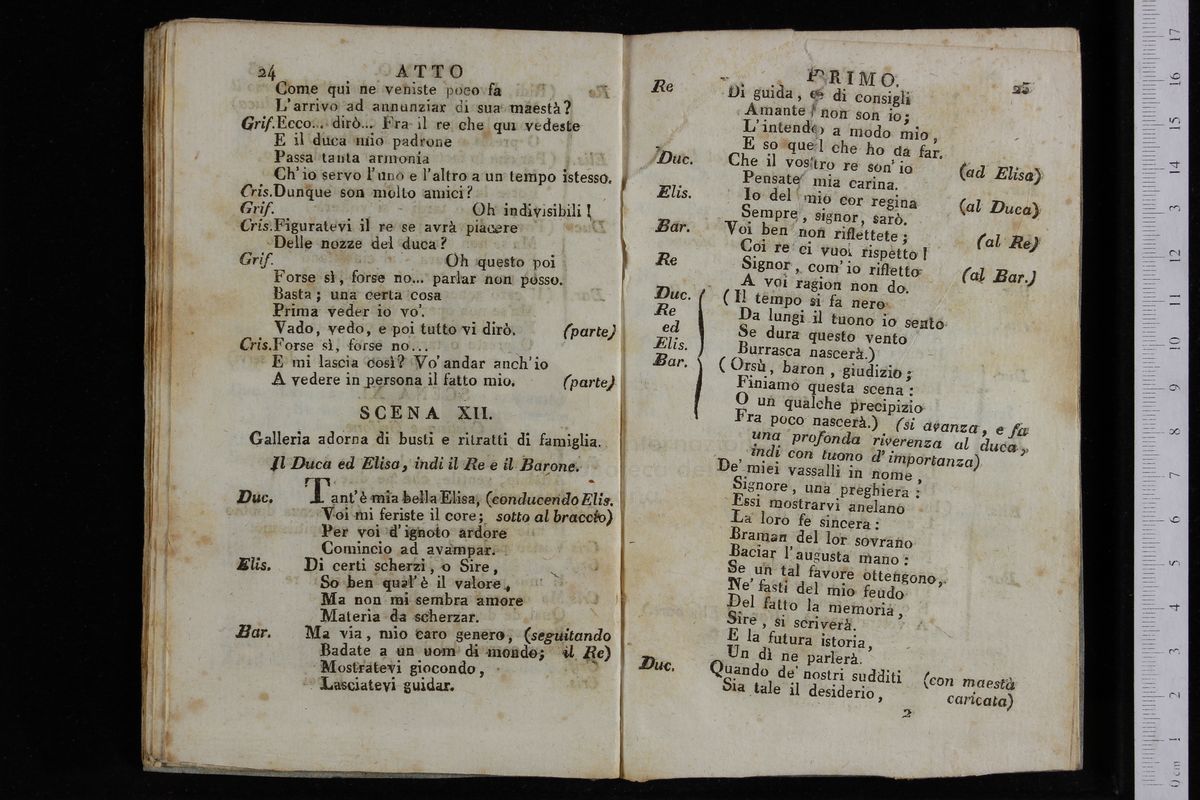 24 ATTO
Come qui ne veniste poco fa
L'arrivo ad annunziar di sua maestà?
Grif. Ecco... dirò... Fra il re che qui vedeste
E il duca mio padrone
Passa tanta armonía
Ch'io servo l'uno e l'altro a un tempo istesso.
Cris. Dunque son molto amici?
Grif. Oh indivisibili!
Cris. Figuratevi il re se avrà piacere
Delle nozze del duca?
Grif. Oh questo poi
Forse sì, forse no... parlar non posso.
Basta; una certa cosa
Prima veder io vo'.
Vado, vedo, e poi tutto vi dirò. (parte)
Cris. Forse sì, forse no...
E mi lascia così? Vo' andar anch'io
A vedere in persona il fatto mio. (parte)
SCENA XII.
Galleria adorna di busti e ritratti di famiglia.
Il Duca ed Elisa, indi il Re e il Barone.
Duc. Tant'è mia bella Elisa, (conducendo Elis.
Voi mi feriste il core; sotto al braccio)
Per voi d'ignoto ardore
Comincio ad avampar.
Elis. Di certi scherzi, o Sire,
So ben qual'è il valore,
Ma non mi sembra amore
Materia da scherzar.
Bar. Ma via, mio caro genero, (seguitando
Badate a un uom di mondo; il Re)
Mostratevi giocondo,
Lasciatevi guidar.
PRIMO. 25
Re Di guida, e di consigli
Amante non son io;
L'intendo a modo mio,
E so quel che ho da far.
Duc. Che il vostro re son' io (ad Elisa)
Pensate mia carina.
Elis. Io del mio cor regina (al Duca)
Sempre, signor, sarò.
Bar. Voi ben non riflettete; (al Re)
Coi re ci vuol rispetto!
Re Signor, com' io rifletto (al Bar.)
A voi ragion non do.
Duc. (Il tempo si fa nero
Re Da lungi il tuono io sento
ed Se dura questo vento
Elis. Burrasca nascerà.)
Bar. (Orsù, baron, giudizio;
Finiamo questa scena:
O un qualche precipizio
Fra poco nascerà.) (si avanza, e fa
una profonda riverenza al duca,
indi con tuono d'importanza)
De' miei vassalli in nome,
Signore, una preghiera:
Essi mostrarvi anelano
La loro fe sincera:
Braman del lor sovrano
Baciar l'augusta mano:
Se un tal favore ottengono,
Ne' fasti del mio feudo
Del fatto la memoria,
Sire, si scriverà.
E la futura istoria,
Un dì ne parlerà.
Duc. Quando de' nostri sudditi (con maestà
Sia tale il desiderio, caricata)
2